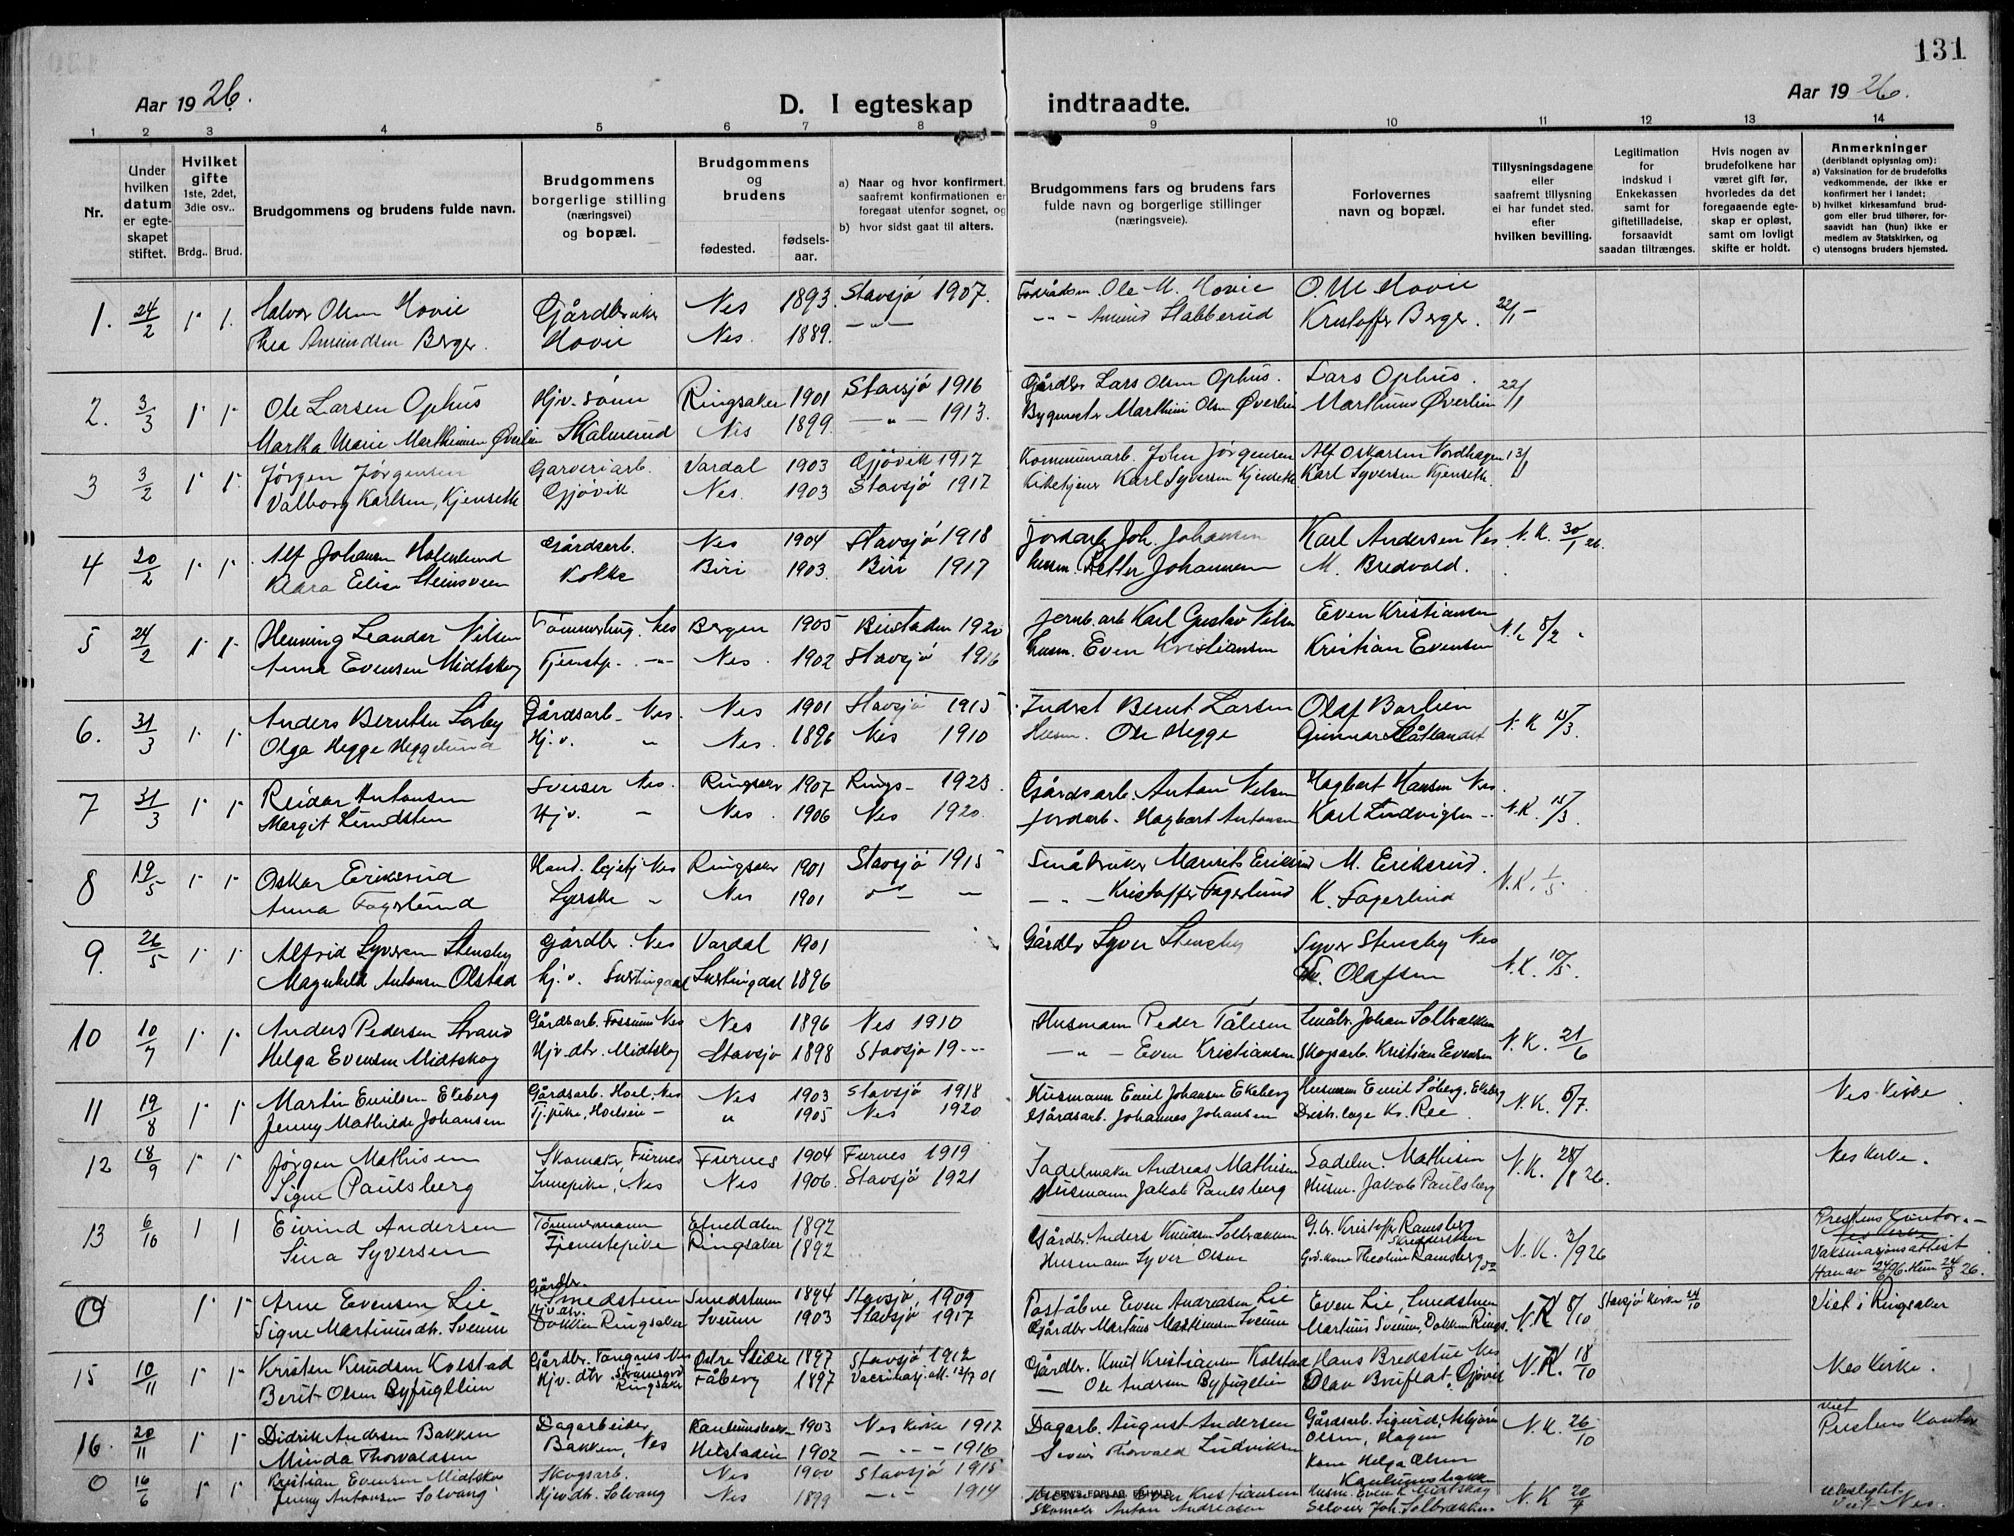 131
Aar 1926.
D. I egteskap indtraadte.
Aar 1926.
1 2 3 4 5 6 7 8 9 10 11 12 13 14
Nr.
Under hvilken datum er egteskapet stiftet.
Hvilket gifte 1ste, 2det, 3die osv..
Brdg.. Brud.
Brudgommens og brudens fulde navn.
Brudgommens borgerlige stilling (næringsvei) og bopæl.
Brudgommens og brudens
fødested. fødselsaar.
a) Naar og hvor konfirmert, saafremt konfirmationen er foregaat utenfor sognet, og
b) hvor sidst gaat til alters.
Brudgommens fars og brudens fars fulde navn og borgerlige stillinger (næringsveie).
Forlovernes navn og bopæl.
Tillysningsdagene eller saafremt tillysning ei har fundet sted. efter hvilken bevilling.
Legitimation for indskud i Enkekassen samt for giftetilladelse, forsaavidt saadan tiltrænges.
Hvis nogen av brudefolkene har været gift før, hvorledes da det foregaaende egteskap er opløst, samt om lovligt skifte er holdt.
Anmerkninger (deriblandt oplysning om):
a) Vaksination for de brudefolks vedkommende, der ikke er konfirmert her i landet;
b) hvilket kirkesamfund brudgom eller brud tilhører, forsaavidt han (hun) ikke er medlem av Statskirken, og
c) utensogns bruders hjemsted.
1. 24/2 1 1. Halvor Olsen Hovie Gårdbruker Nes 1893. Stavsjø 1907. Ole M. Hovie O. M. Hovie 22/1 -
Thea Amundsen Berger. Hovie Nes. 1889. - " - - " - Amund Stabberud Kristoffer Berger.
2. 3/3 1 1 Ole Larsen Ophus Hjv. sønn Ringsaker 1901 Stavsjø 1916 Gårdbr Lars Olsen Ophus. Lars Ophus. 22/1
Martha Marie Marthinsen Øverlien Skalmerud Nes 1899. - " - 1913. Marthin Olsen Øverlien Marthinus Øverlien
3 3/2 1 1. Jørgen Jørgensen Garveriarb. Vardal 1903 Gjøvik 1917 Kommunearb. John Jørgensen Alf Oskarsen Nordhagen 13/1
Valborg Karlsen, Kjenseth Gjøvik Nes. 1903 Stavsjø 1917 Kirketjener Karl Syversen Kjenseth. Karl Syversen Kjenseth.
4 20/2 1 1 Alf Johansen Holmlund Gårdsarb. Nes 1904 Stavsjø 1918 Jordarb. Joh. Johansen Karl Andersen Nes N.K. 30/1 26.
Klara Elise Steinsveen Kolke Biri 1903. Biri 1917 Husm. Petter Johannesen M. Bredvold.
5 24/2 1 1 Henning Leander Nilsen Tømmerhug. Nes Bergen 1905 1920 Jernb.arb Karl Gustav Nilsen Even Kristiansen N.K. 8/2
Anna Evensen Midtskog Tjenstp. - " - Nes. 1902 Stavsjø 1916 Husm. Even Kristiansen Kristian Evensen
6. 31/3 1 1 Anders Berntsen Sørby Gårdsarb - Nes. Nes 1901 Stavsjø 1915 Indrst Bernt Larsen Olaf Borlien N.K 15/3.
Olga Hegge Heggelund Hj.v. " Nes. 1896 Nes 1910 Husm. Ole Hegge Gunnar Slåtlandet
7 31/3 1 1 Reidar Antonsen Sveiser Nes. Ringsaker 1907 Rings - 1923. Gårdsarb. Anton Nilsen Hagbart Hansen Nes. N.K. 15/3.
Margit Lundsten Hj v. - Nes. 1906 Nes 1920. Jordarb. Hagbart Antonsen Karl Ludvigsen -
8 19/5 1 1 Oskar Eriksrud Nes Ringsaker 1901 Stavsjø 1915 Småbruker Maurits Eriksrud M. Eriksrud. N.K. 1/5
Anna Fagerlund Syerske " Nes 1901 - " - Kristoffer Fagerlund K. Fagerlund
9. 26/5 1 1 Alfrid Syversen Stensby Gårdbr. Nes Vardal 1901 Gårdbr Syver Stensby Syver Stensby Nes N.K. 10/5.
Magnhild Antonsen Olstad Hj. v. Snertingdal Snertingdal 1896 Olafsen
10 10/7 1 1 Anders Pedersen Strand Gårdsarb. Fossum Nes Nes 1896 Nes 1910 Husmann Peder Tålesen Småbr. Johan Solbrækken N.K. 21/6
Helga Evensen Midtskog Hjv. dtr. Midtskog Stavsjø 1898 Stavsjø 19 -- - " - Even Kristiansen Skogsarb. Kristian Evensen
11 19/8 1 1 Martin Emilsen Ekeberg Gårdsarb. Hoel, Nes Nes 1903 Stavsjø 1918 Husmann Emil Johansen Ekeberg Husmann Emil Søberg, Ekeberg N.K. 6/7. Nes Kirke.
Jenny Mathilde Johansen Tj.pike, Hoelsein - " 1905 Nes 1920 Gårdsarb. Johannes Johansen Distr.læge Kr. Ree.
12 18/9 1 1 Jørgen Mathisen Skomaker, Furnes Furnes 1904 Furnes 1919 Sadelmaker Andreas Mathisen Sadelm. Mathisen N.K. 28/8 26. Nes Kirke.
Signe Paulsberg Innepike, Nes Nes 1906. Stavsjø 1921 Husmann Jakob Paulsberg Husm. Jakob Paulsberg
13 6/10 1 1 Eivind Andersen Tømmermann Etnedalen 1892 Gårdbr. Anders Knudsen Solbrækken G.br. Kristoffer Ramsberg Skreppersteen N.K. 3/9 26 Prestens Kontor. -
Sina Syversen Tjenestepike Ringsaker 1892 Husmann Syver Olsen Grd.kone Theoline Ramsberg do Vaksinasjonsattest
Han av 24/6 96. Hun 24/8 26.
14 1 1 Arne Evensen Lie Gårdbr. Smedstuen Smedstuen 1894 Stavsjø, 1909 Poståbne Even Andreasen Lie Even Lie, Smedstuen N.K 8/10 Stavsjø Kirke 24/10 Viet i Ringsaker
Signe Martinusdtr. Sveum Hjv. dtr. Dokken Ringsaker Sveum 1903 Stavsjø 1917 Gårdbr Martinus Mathiesen Sveum Martinus Sveum, Dokken Rings.
15 10/11 1 1 Kristen Knudsen Kolstad Gårdbr. Tangnes Nes Østre Slidre 1897 Stavsjø 1912 Gårdbr. Knut Kristiansen Kolstad Hans Bredstue Nes N.K. 18/10 Nes Kirke.
Berit Olsen Byfuglien Hjv. dtr. Ringsaker Fåberg 1897 Vaccinasj. att. 12/7 01 - Ole Andersen Byfuglien Olav Bruflat, Gjøvik
16. 20/11 1 1 Didrik Andersen Bakken Dagarbeider 1903 Nes Kirke 1917 Dagarb. August Andersen Gårdsarb. Sigurd Asbjørn N.K. 26/10 viet Prestens Kontor
Minda Thorvaldsen Bakken, Nes Helstadeie 1902 - " - - 1916 Thorvald Ludviksen Olsen, Hagen
Kone Helga Olsen
0 16/6 1 1 Kristian Evensen Midtskog Skogsarb. Nes 1900 Stavsjø 1915 Even Kristiansen Husm. Even E. Midtskog N.K 20/4
Jenny Antonsen Solvang Hjv.dtr. Solvang Nes 1899 - " - 1914 Skomaker Anton Andreasen Joh. Solbrækken Nes.